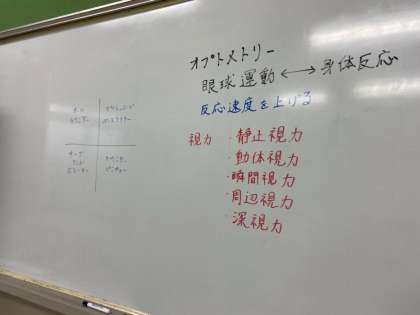 オプトメトリー
眼球運動 ←→ 身体反応
反応速度を上げる
視力 ・静止視力
・動体視力
・瞬間視力
・周辺視力
・深視力